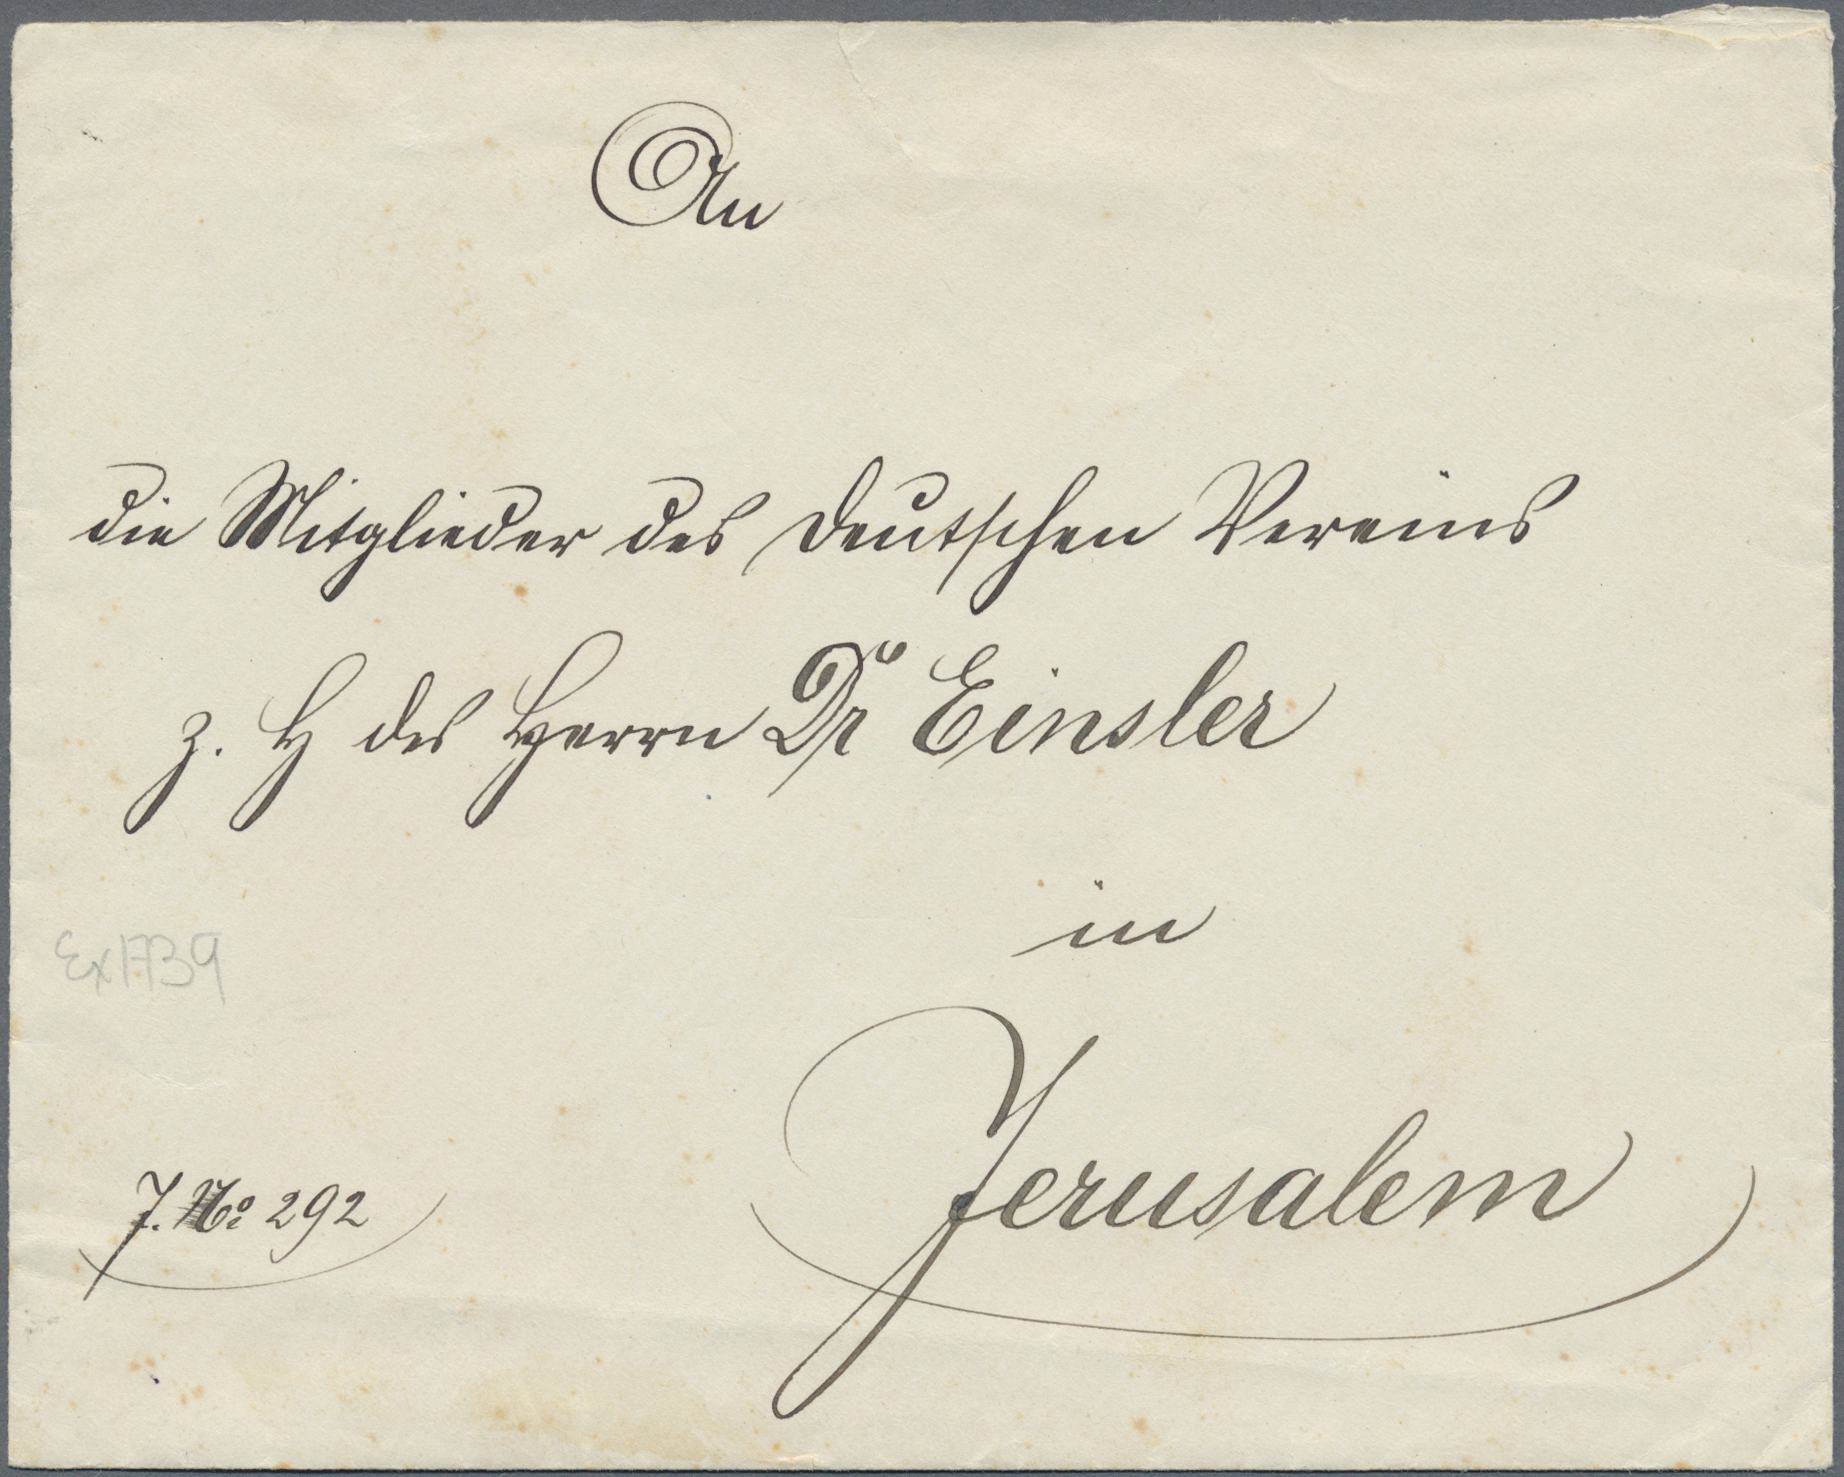 An
die Mitglieder des deutschen Vereins
z. H des Herrn Dr Einsler
in
Ex1739
Jerusalem
J. No 292